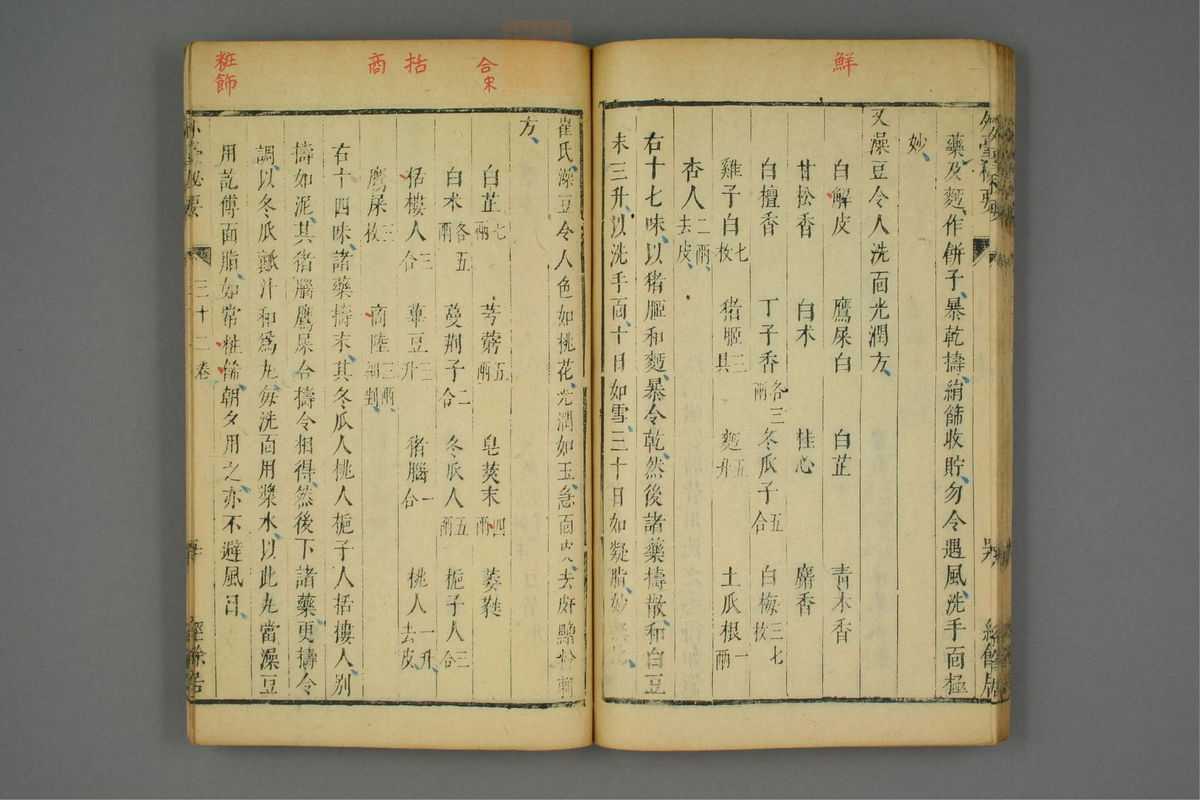 鮮
藥及麪作餅子暴乾擣絹篩收貯勿令遇風洗手面極
妙
又澡豆令人洗面光潤方
白解皮 鷹屎白 白芷 青木香
甘松香 白术 桂心 麝香
白檀香 丁子香各三兩 冬瓜子五合 白梅三七枚
雞子白七枚 猪脠三具 麪五升 土瓜根一兩
杏人二兩去皮
右十七味以猪脠和麪暴令乾然後諸藥擣散和白豆
末三升以洗手面十日如雪三十日如凝脂妙
合宋
括
商
粧飾
崔氏澡豆令人色如桃花光潤如玉急面皮去皯䵟粉刺
方
白芷七兩 芎藭五兩 皂莢末四兩 葳蕤
白术各五兩 蔓荆子二合 冬瓜人五兩 梔子人三合
栝樓人三合 蓽豆三升 猪腦一合 桃人一升去皮
鷹屎三枚 商陸三兩細剉
右十四味諸藥擣末其冬瓜人桃人梔子人栝樓人別
擣如泥其猪腦鷹屎合擣令相得然後下諸藥更擣令
調以冬瓜瓤汁和爲丸每洗面用漿水以此丸當澡豆
用訖傅面脂如常粧餙朝夕用之亦不避風日
外臺秘要 三十二卷 經餘居